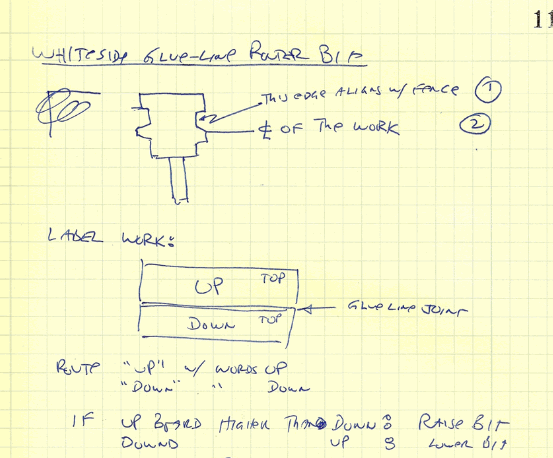 11
WHITESIDE GLUE-LINE ROUTER BIT
THIS EDGE ALIGNS W/ FENCE ①
℄ OF THE WORK ②
LABEL WORK:
UP TOP
GLUE LINE JOINT
DOWN TOP
ROUTE "UP" W/ WORDS UP
"DOWN" " DOWN
IF UP BOARD HIGHER THAN DOWN: RAISE BIT
DOWN UP : LOWER BIT